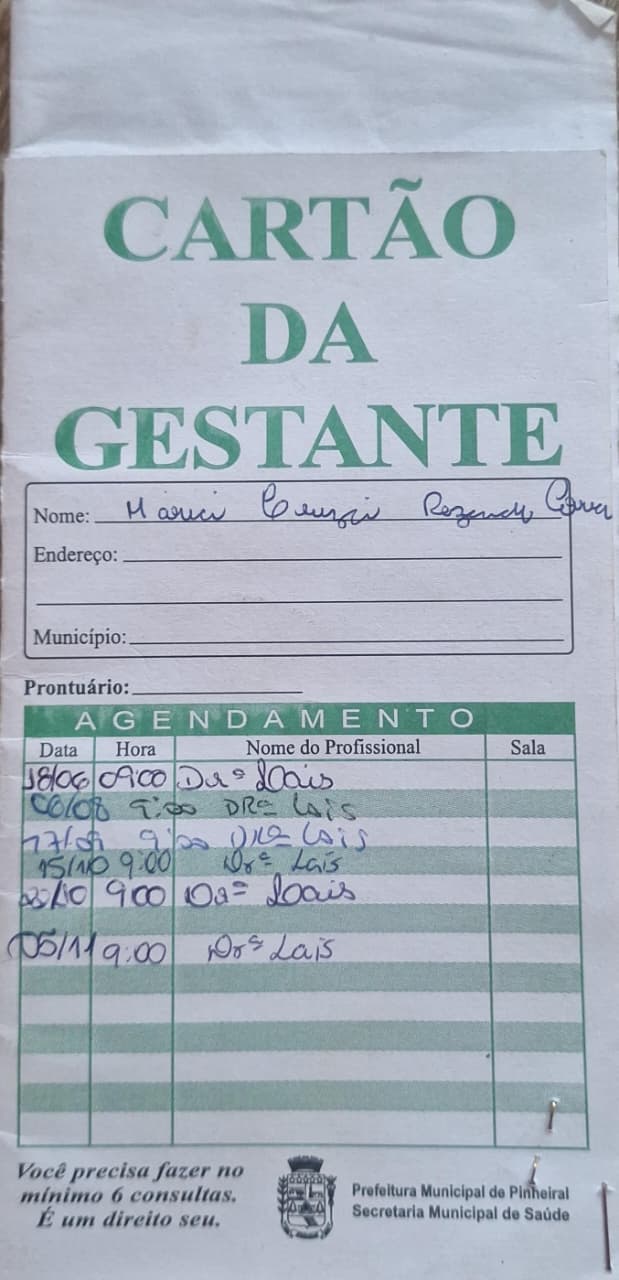 CARTÃO
DA
GESTANTE
Nome: Rezende
Endereço:
Município:
Prontuário:
AGENDAMENTO
Data Hora Nome do Profissional Sala
18/06 09:00 Drª Lais
06/08 9:00 DRª Lais
17/09 9:00 DRª Lais
15/10 9:00 Drª Lais
/10 900 Drª Lais
05/11 9:00 Drª Lais
Você precisa fazer no
mínimo 6 consultas.
É um direito seu.
Prefeitura Municipal de Pinheiral
Secretaria Municipal de Saúde